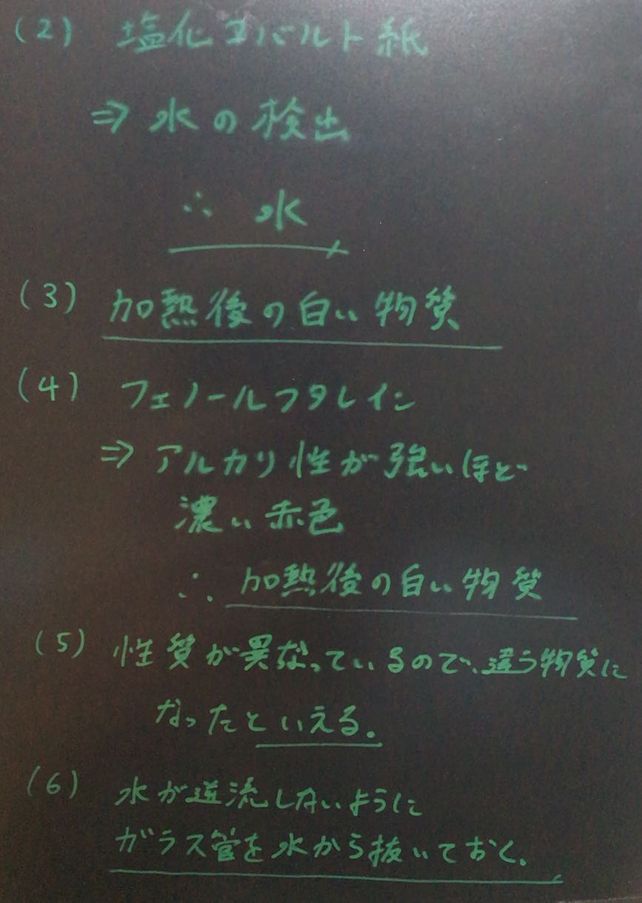 (2) 塩化コバルト紙
⇒ 水の検出
∴ 水
(3) 加熱後の白い物質
(4) フェノールフタレイン
⇒ アルカリ性が強いほど
濃い赤色
∴ 加熱後の白い物質
(5) 性質が異なっているので、違う物質に
なったといえる。
(6) 水が逆流しないように
ガラス管を水から抜いておく。